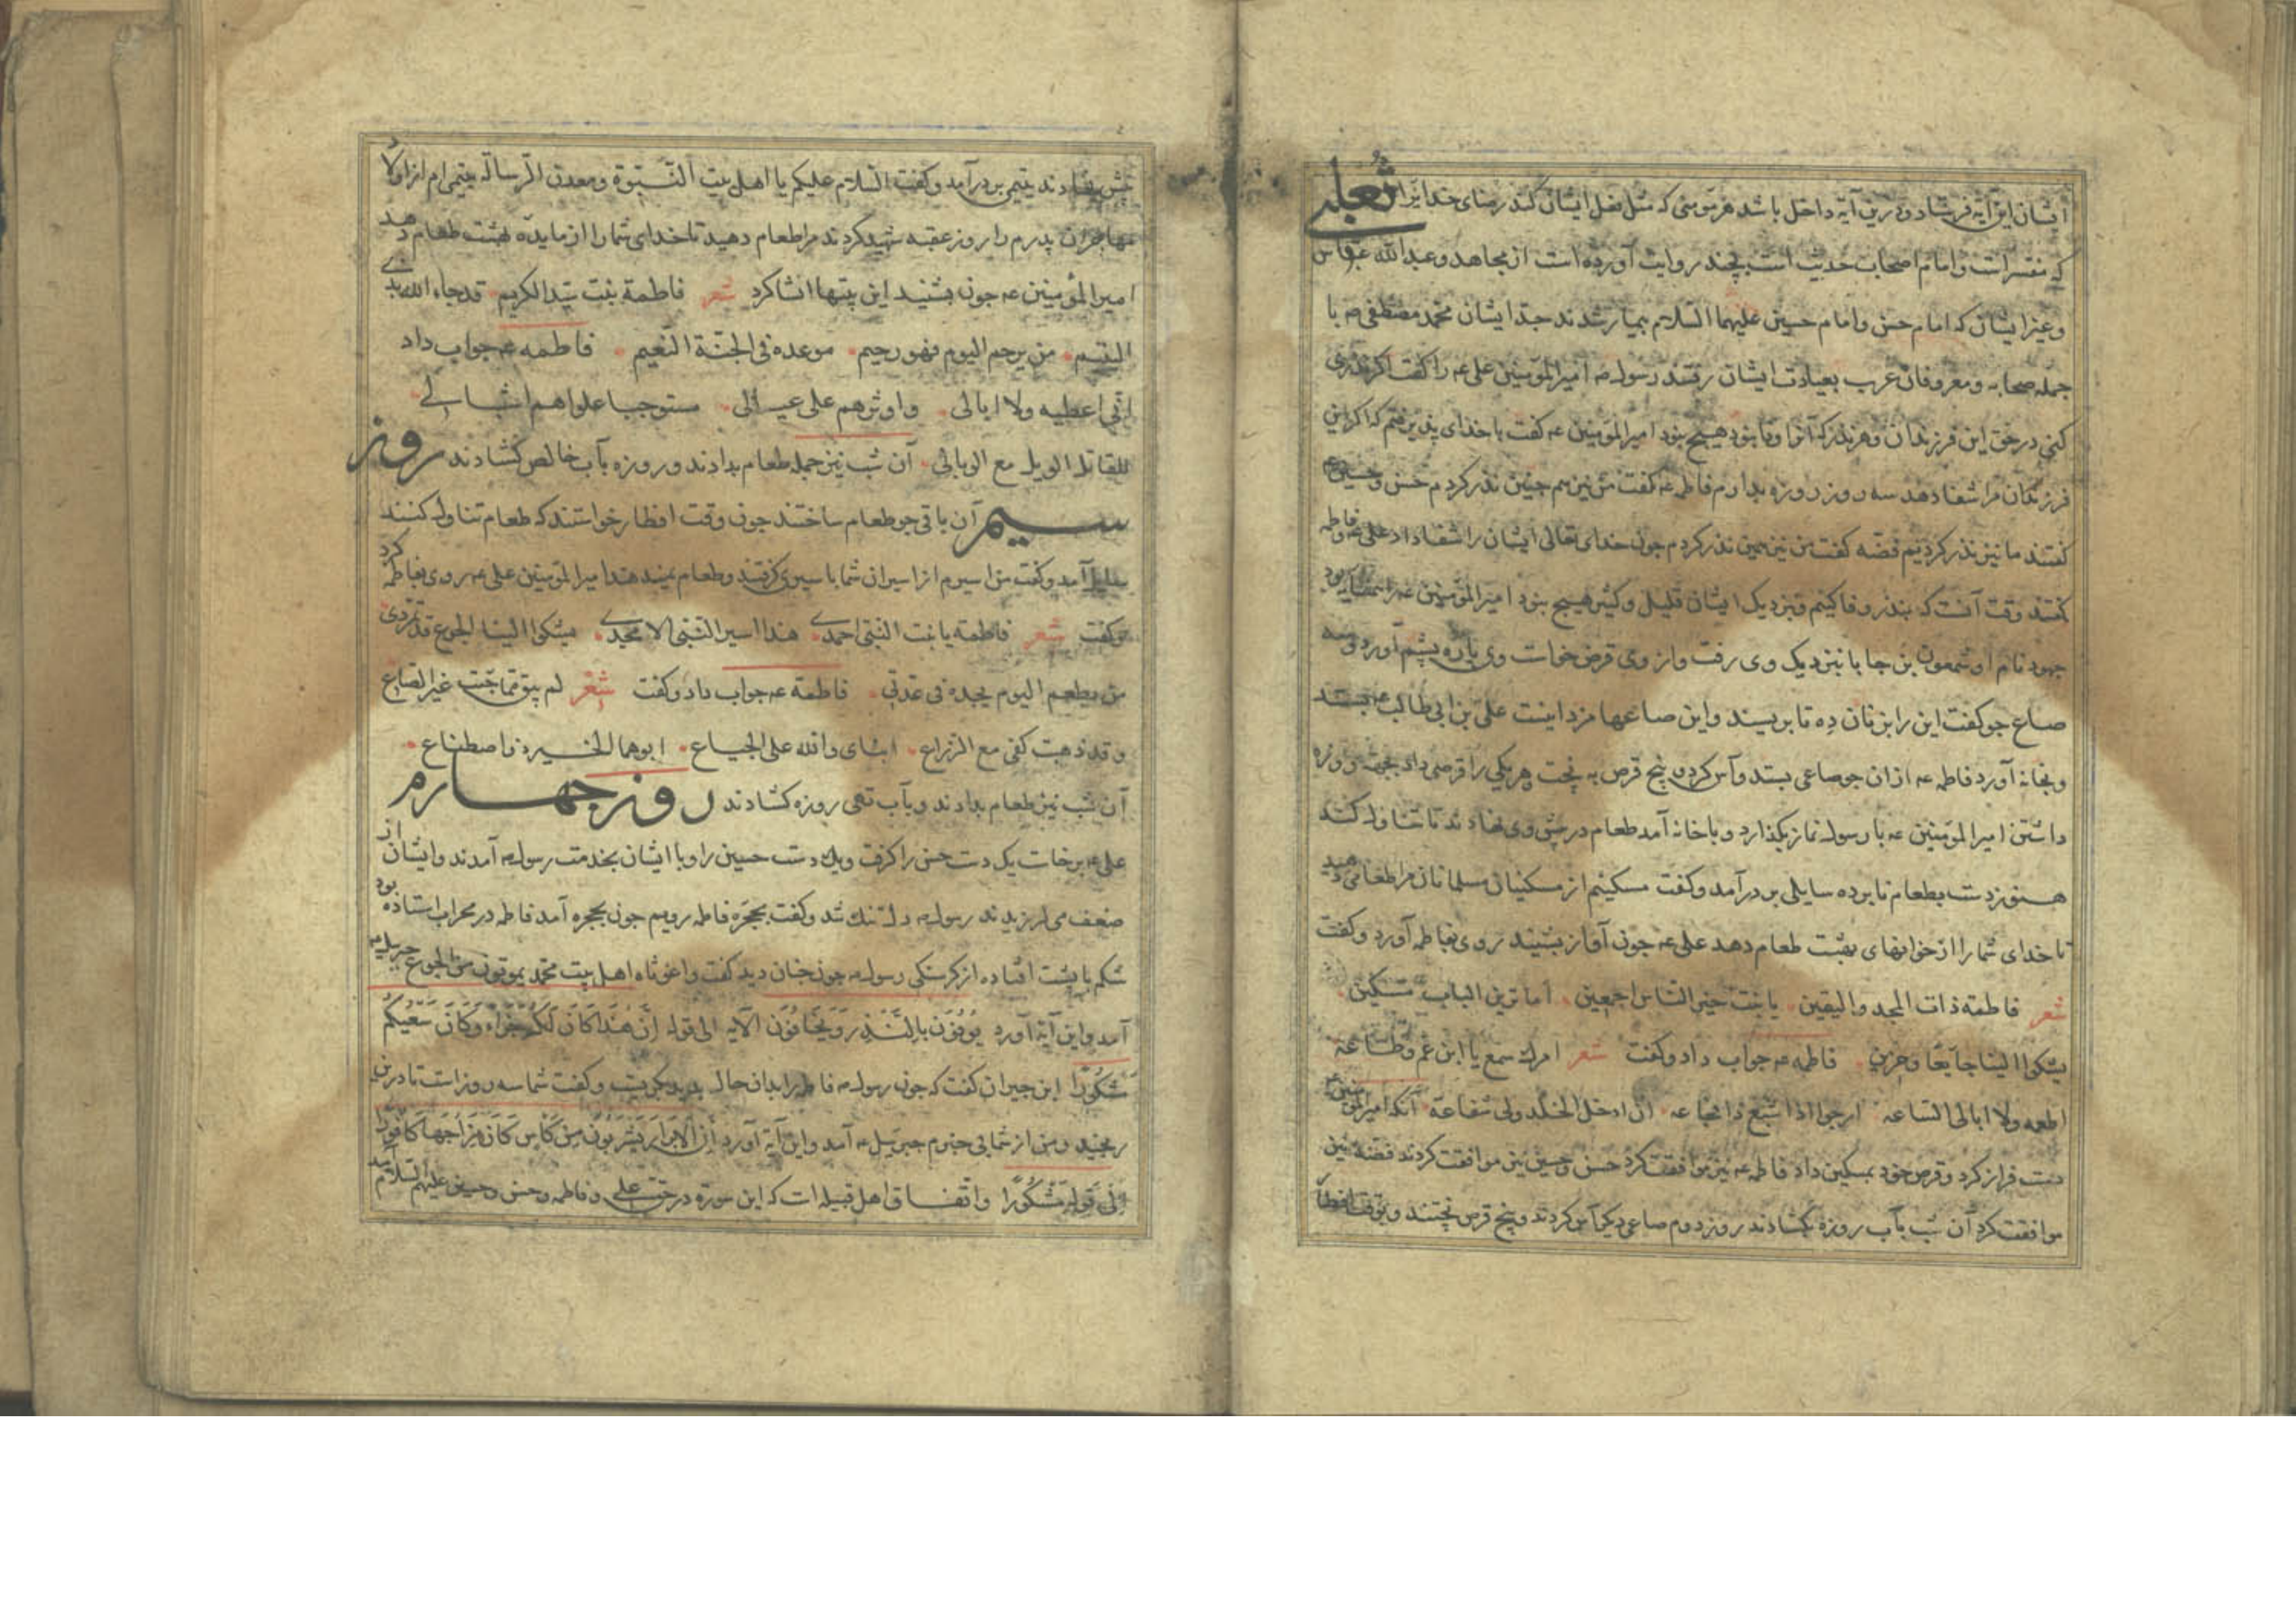 ایشان این آیة فرستاد و درین آیة داخل باشد هر مؤمنی که مثل فعل ایشان کند رضای خدایرا ثعلبی
که مفسر است و امام اصحاب حدیث است بچند روایت آورده است از مجاهد و عبد الله عباس
و غیر ایشان که امام حسن و امام حسین علیهما السلام بیمار شدند جد ایشان محمد مصطفی صه با
جمله صحابه و معروفان عرب بعیادت ایشان رفتند رسول صه امیر المؤمنین علی عه را گفت اگر نذری
کنی در حق این فرزندان و هر نذر که آنرا وفا نبود هیچ نبود امیر المؤمنین عه گفت با خدای پذیرفتم که اگر این
فرزندان مرا شفا دهد سه روز روزه بدارم فاطمه عه گفت من نیز هم چنین نذر کردم حسن و حسین عه
گفتند ما نیز نذر کردیم فضه گفت من نیز همین نذر کردم چون خدای تعالی ایشان را شفا داد علی عه و فاطمه
گفتند وقت آنست که بنذر وفا کنیم و نزدیک ایشان قلیل و کثیر هیچ نبود امیر المؤمنین عه را همسایه بود
جهود نام او شمعون بن حابا نیزدیک وی رفت و از وی قرض خواست وی پاره پشم آورد و سه
صاع جو گفت این را بزنان ده تا بریسند و این صاعها مزد اینست علی بن ابی طالب عه بستد
و بخانه آورد فاطمه عه از ان جو صاعی بستد و آس کرد و پنج قرص به پخت و هر یکی را قرصی داد بجهة روزه
داشتن امیر المؤمنین عه با رسول نماز بگذارد و با خانه آمد طعام در پیش وی نهادند تا تناول کنند
هنوز دست بطعام نابرده سایلی بر در آمد و گفت مسکینم از مسکینان مسلمانان مرا طعامی دهید
تا خدای شما را از خوانهای بهشت طعام دهد علی عه چون آواز بشنید روی بفاطمه آورد و گفت
شعر فاطمة ذات المجد والیقین یا بنت خیر الناس اجمعین اما ترین الباب مسکین
یشکوا الینا جایعا و حزین فاطمه عه جواب داد و گفت شعر امرک سمع یا ابن عم و طاعة
اطعمه ولا ابالی الساعه ارجوا اذا اشبع ذا مجاعه ان ادخل الخلد ولی شفاعة آنکه امیر المؤمنین عه
دست فراز کرد و قرص خود بمسکین داد فاطمه عه نیز موافقت کرد حسن و حسین نیز موافقت کردند فضه نیز
موافقت کرد آن شب بآب روزه بگشادند روز دوم صاعی دیگر آس کردند و پنج قرص پختند و بوقت افطار
پیش نهادند یتیمی بر در آمد و گفت السلام علیکم یا اهل بیت النبوة و معدن الرسالة یتیمی ام از اولاد
مهاجران پدرم را روز عقبه شهید کردند مرا طعام دهید تا خدای شما را از مایده بهشت طعام دهد
امیر المؤمنین عه چون بشنید این بیتها انشا کرد شعر فاطمة بنت سید الکریم قد جاء الله بذی
الیتیم من یرحم الیوم فهو رحیم موعده فی الجنة النعیم فاطمه عه جواب داد
انی اعطیه ولا ابالی واوثرهم علی عیالی
للقاتل الویل مع الوبالی آن شب نیز جمله طعام بدادند و روزه بآب خالص گشادند روز
سیم آن باقی جو طعام ساختند چون وقت افطار خواستند که طعام تناول کنند
آمد و گفت من اسیرم از اسیران شما باسیری گرفتند و طعام نمیدهند امیر المؤمنین علی عه روی بفاطمه کرد
و گفت شعر فاطمة یا بنت النبی احمدی هذا اسیر النبی الامجدی یشکوا الینا الجوع قد
من یطعم الیوم یجده فی غدی فاطمة عه جواب داد و گفت شعر لم یبق مما جئت غیر الصاع
و قد ذهبت کفی مع الذراع ابنای والله علی الجیاع ابوهما للخیر ذو اصطناع
آن شب نیز طعام بدادند و بآب تهی روزه گشادند روز چهارم
علی عه برخاست یک دست حسن را گرفت و یک دست حسین را و با ایشان بخدمت رسول صه آمدند و ایشان از
ضعف می لرزیدند رسول صه دلتنک شد و گفت بحجره فاطمه رویم چون بحجره آمد فاطمه در محراب استاده بود
شکم با پشت افتاده از کرسنکی رسول صه چون چنان دید گفت واغوثاه اهل بیت محمد یموتون من الجوع جبریل عه
آمد و این آیة آورد یُوفُونَ بِالنَّذْرِ وَیَخَافُونَ الآیه الی قوله اِنَّ هٰذَا کَانَ لَکُمْ جَزَاء وَکَانَ سَعْیُکُمْ
مَشْکُورًا ابن جیران گفت که چون رسول صه فاطمه را بدان حال بدید بگریست و گفت شما سه روز است تا درین
رنجید و من از شما بی خبرم جبرییل عه آمد و این آیة آورد اِنَّ الْاَبْرَارَ یَشْرَبُونَ مِنْ کَاْسٍ کَانَ مِزَاجُهَا کَافُورًا
اِلٰی قَوْلِه مَشْکُورًا و اتفاق اهل قبیله است که این سورة در حق علی و فاطمه و حسن و حسین علیهم السلام آمد